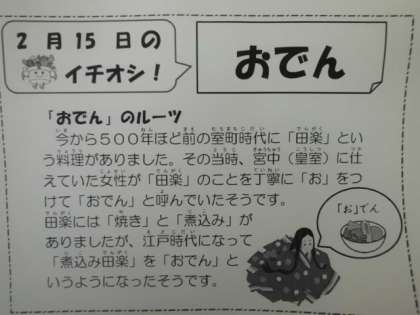 2月15日の
イチオシ！
おでん
「おでん」のルーツ
今から500年ほど前の室町時代に「田楽」とい
う料理がありました。その当時、宮中（皇室）に仕
えていた女性が「田楽」のことを丁寧に「お」をつ
けて「おでん」と呼んでいたそうです。
田楽には「焼き」と「煮込み」が
ありましたが、江戸時代になって
「煮込み田楽」を「おでん」と
いうようになったそうです。
「お」でん